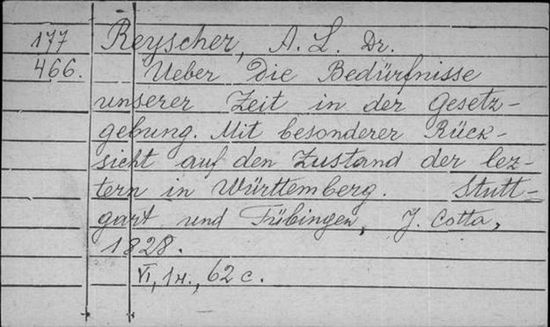 177 Reyscher, A. L. Dr.
466. Ueber die Bedürfnisse
unserer Zeit in der Gesetz-
gebung. Mit besonderer Rück-
sicht auf den Zustand der lez-
tern in Württemberg. Stutt-
gart und Tübingen, J. Cotta,
1828.
VI, 1н., 62 c.